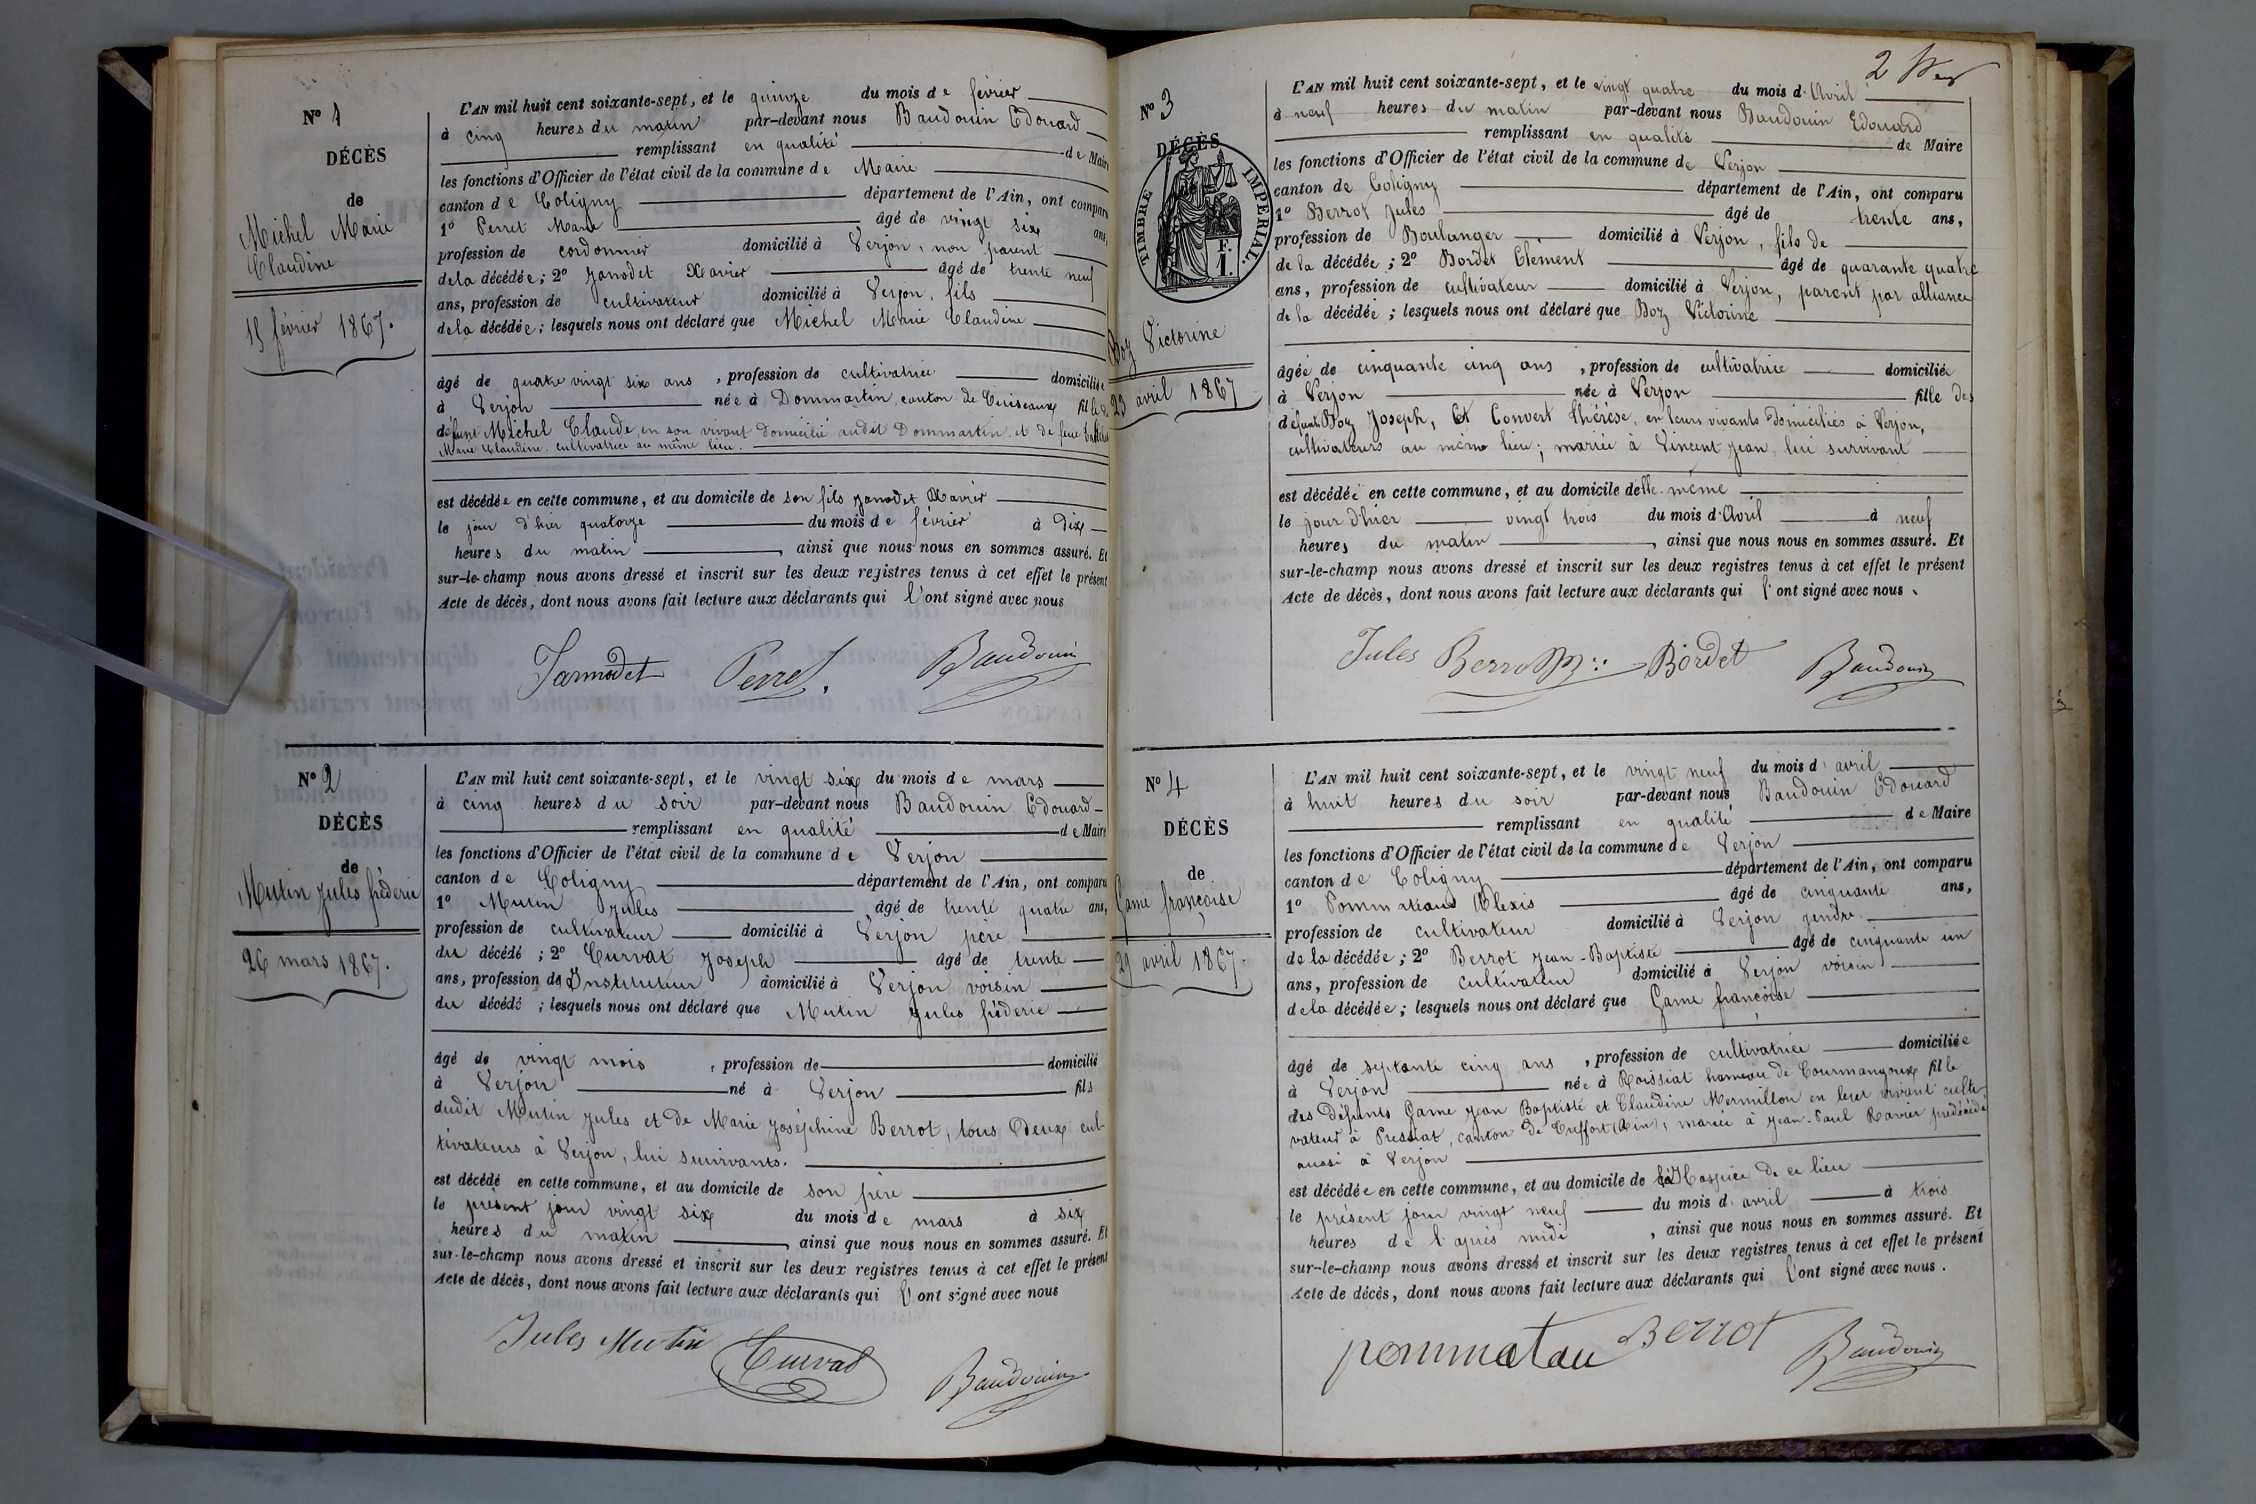 Nº 1
DÉCÈS
de
Michel Marie
Claudine
15 février 1867.
L'AN mil huit cent soixante-sept, et le quinze du mois de février
à cinq heures du matin par-devant nous Baudouin Edouard
remplissant en qualité de Maire
les fonctions d'Officier de l'état civil de la commune de Maire
canton de Coligny département de l'Ain, ont comparu
1º Perret Marie âgé de vingt six ans,
profession de cordonnier domicilié à Verjon, non parent
de la décédée; 2º Janodet Xavier âgé de trente neuf
ans, profession de cultivateur domicilié à Verjon, fils
de la décédée; lesquels nous ont déclaré que Michel Marie Claudine
âgé de quatre vingt six ans, profession de cultivatrice domiciliée
à Verjon née à Dommartin, canton de Cuiseaux fille de
défunt Michel Claude, en son vivant domicilié audit Dommartin et de feue
Marie Claudine, cultivatrice au même lieu.
est décédée en cette commune, et au domicile de son fils Janodet Xavier
le jour d'hier quatorze du mois de février à dix
heures du matin, ainsi que nous nous en sommes assuré. Et
sur-le-champ nous avons dressé et inscrit sur les deux registres tenus à cet effet le présent
Acte de décès, dont nous avons fait lecture aux déclarants qui l'ont signé avec nous
Janodet Perret. Baudouin
Nº 2
DÉCÈS
de
Mutin Jules fréderic
26 mars 1867.
L'AN mil huit cent soixante-sept, et le vingt six du mois de mars
à cinq heures du soir par-devant nous Baudouin Edouard
remplissant en qualité de Maire
les fonctions d'Officier de l'état civil de la commune de Verjon
canton de Coligny département de l'Ain, ont comparu
1º Mutin Jules âgé de trente quatre ans,
profession de cultivateur domicilié à Verjon père
du décédé; 2º Curvat Joseph âgé de trente
ans, profession de Instituteur domicilié à Verjon voisin
du décédé; lesquels nous ont déclaré que Mutin Jules fréderic
âgé de vingt mois, profession de domicilié
à Verjon né à Verjon fils
dudit Mutin Jules et de Marie Joséphine Berrot, tous deux cul-
tivateurs à Verjon, lui survivants.
est décédé en cette commune, et au domicile de son père
le présent jour vingt six du mois de mars à six
heures du matin, ainsi que nous nous en sommes assuré. Et
sur-le-champ nous avons dressé et inscrit sur les deux registres tenus à cet effet le présent
Acte de décès, dont nous avons fait lecture aux déclarants qui l'ont signé avec nous
Jules Mutin Curvat Baudouin
2
Nº 3
DÉCÈS
TIMBRE IMPERIAL.
F.
1.
Boz Victorine
23 avril 1867
L'AN mil huit cent soixante-sept, et le vingt quatre du mois d'Avril
à neuf heures du matin par-devant nous Baudouin Edouard
remplissant en qualité de Maire
les fonctions d'Officier de l'état civil de la commune de Verjon
canton de Coligny département de l'Ain, ont comparu
1º Berrot Jules âgé de trente ans,
profession de Boulanger domicilié à Verjon, fils de
de la décédée; 2º Bordet Clément âgé de quarante quatre
ans, profession de cultivateur domicilié à Verjon, parent par alliance
de la décédée; lesquels nous ont déclaré que Boz Victorine
âgée de cinquante cinq ans, profession de cultivatrice domiciliée
à Verjon née à Verjon fille des
défunts Boz Joseph, Et Convert thérèse, en leurs vivants domiciliés à Verjon,
cultivateurs au même lieu; mariée à Vincent Jean, lui survivant
est décédée en cette commune, et au domicile delle même
le jour d'hier vingt trois du mois d'Avril à neuf
heures du matin, ainsi que nous nous en sommes assuré. Et
sur-le-champ nous avons dressé et inscrit sur les deux registres tenus à cet effet le présent
Acte de décès, dont nous avons fait lecture aux déclarants qui l'ont signé avec nous.
Jules Berrot Bordet Baudouin
Nº 4
DÉCÈS
de
Game françoise
29 avril 1867.
L'AN mil huit cent soixante-sept, et le vingt neuf du mois d'avril
à huit heures du soir par-devant nous Baudouin Edouard
remplissant en qualité de Maire
les fonctions d'Officier de l'état civil de la commune de Verjon
canton de Coligny département de l'Ain, ont comparu
1º Pommatau Alexis âgé de cinquante ans,
profession de cultivateur domicilié à Verjon gendre
de la décédée; 2º Berrot Jean-Baptiste âgé de cinquante un
ans, profession de cultivateur domicilié à Verjon voisin
de la décédée; lesquels nous ont déclaré que Game françoise
âgé de septante cinq ans, profession de cultivatrice domiciliée
à Verjon née à Roissiat hameau de Courmangoux fille
des défunts Game Jean Baptiste et Claudine Mermillon en leur vivant culti-
vateur à Pressiat, canton de Treffort (Ain), mariée à Jean-Paul Ravier predécédé
aussi à Verjon
est décédée en cette commune, et au domicile de l'Hospice de ce lieu
le présent jour vingt neuf du mois d'avril à trois
heures de l'après midi, ainsi que nous nous en sommes assuré. Et
sur-le-champ nous avons dressé et inscrit sur les deux registres tenus à cet effet le présent
Acte de décès, dont nous avons fait lecture aux déclarants qui l'ont signé avec nous.
pommatau Berrot Baudouin